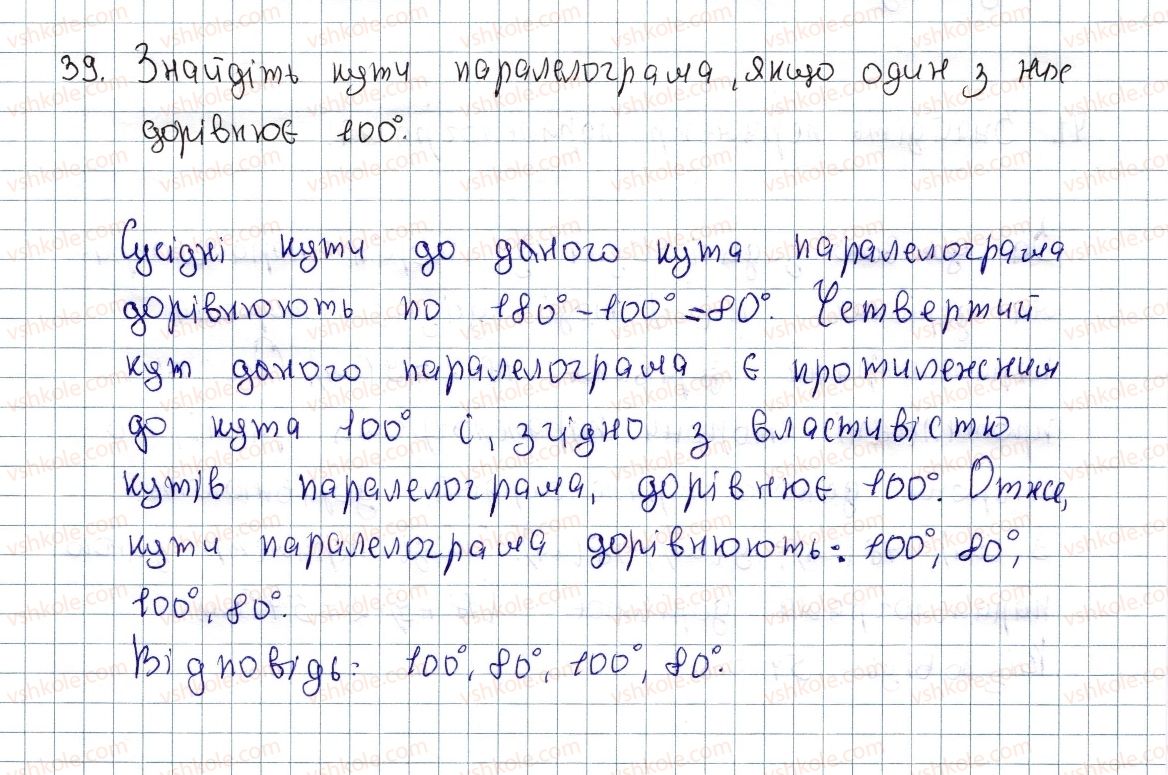 39. Знайдіть кути паралелограма, якщо один з них
дорівнює 100°.
Сусідні кути до даного кута паралелограма
дорівнюють по 180° - 100° = 80°. Четвертий
кут даного паралелограма є протилежним
до кута 100° і, згідно з властивістю
кутів паралелограма, дорівнює 100°. Отже,
кути паралелограма дорівнюють: 100°, 80°,
100°, 80°.
Відповідь: 100°, 80°, 100°, 80°.
vshkole.com